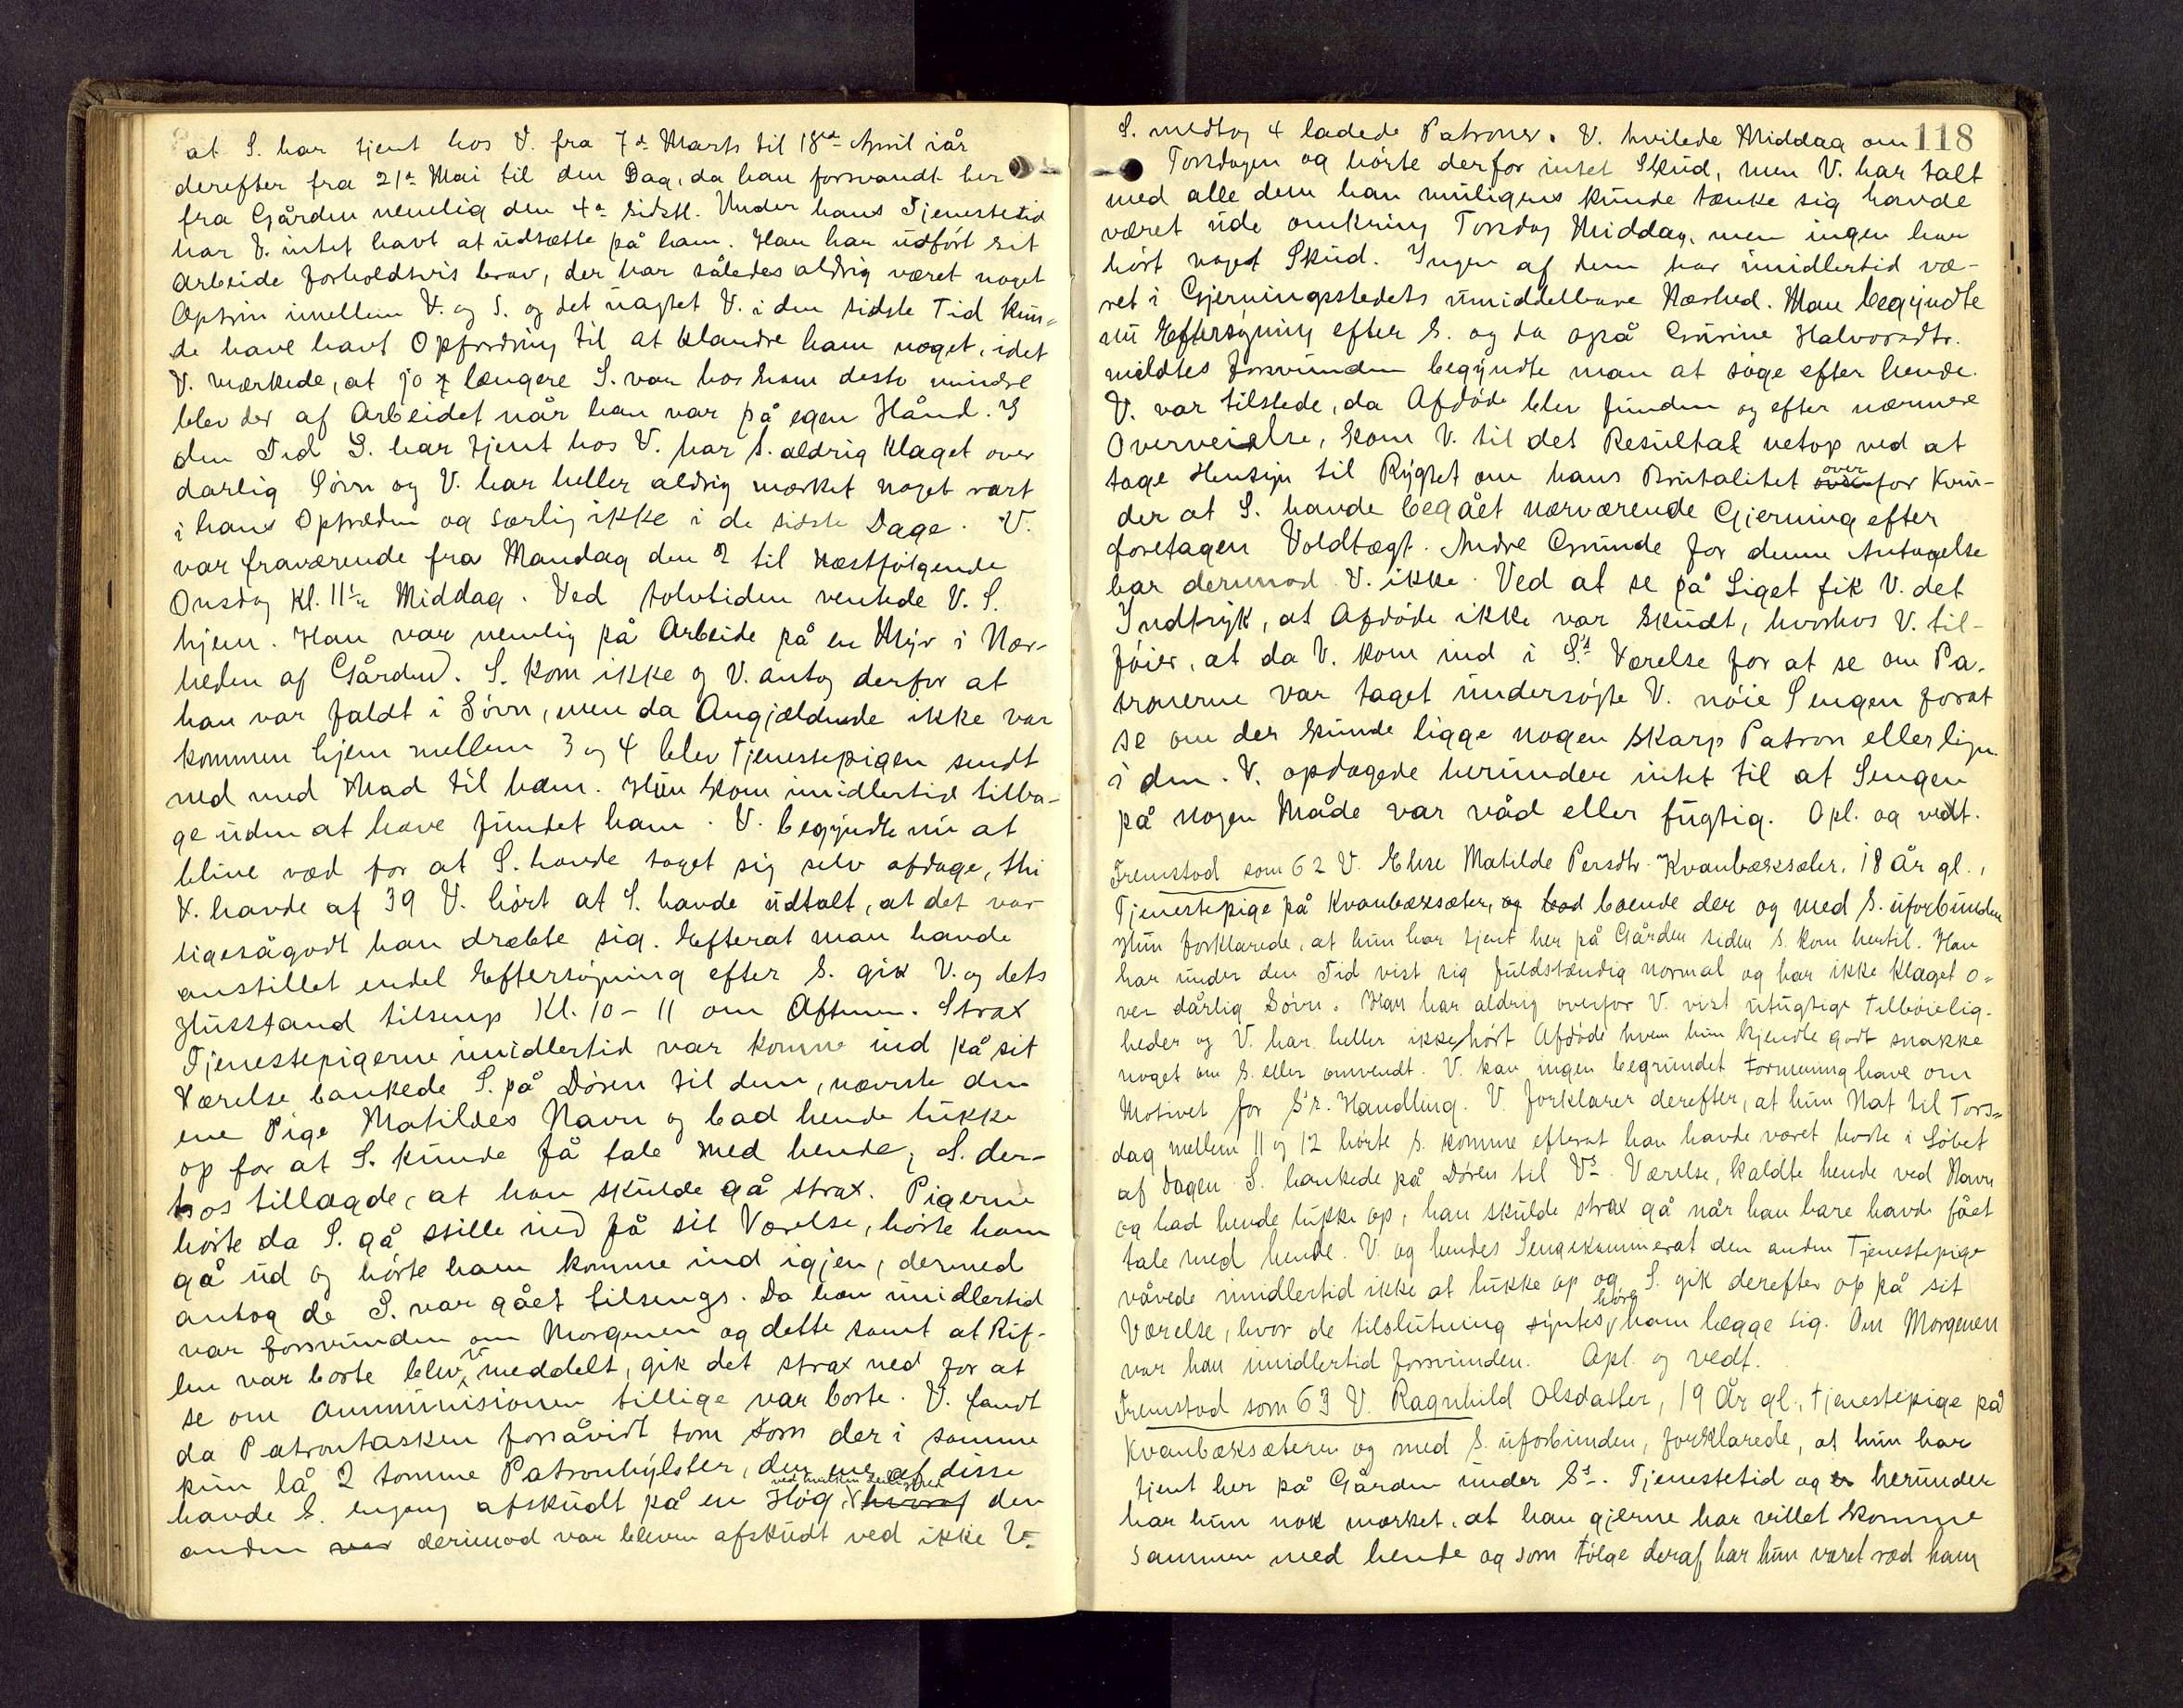 at S. har tjent hos V. fra 7de Marts til 18de April iår
derefter fra 21de Mai til den Dag, da han forsvandt her
fra Gården nemlig den 4de sidstl. Under hans Tjenestetid
har V. intet havt at udsætte på ham. Han har udført sit
Arbeide forholdsvis brav, der har således aldrig været noget
Optrin imellem V. og S. og det uagtet V. i den sidste Tid kun-
de have havt Opfordring til at klandre ham noget, idet
V. mærkede, at jo længere S. var hos ham desto mindre
blev der af Arbeidet når han var på egen Hånd. I
den Tid S. har tjent hos V. har S. aldrig klaget over
darlig Søvn og V. har heller aldrig mærket noget rart
i hans Optræden og særlig ikke i de sidste Dage. V.
var fraværende fra Mandag den 2 til næstfølgende
Onsdag Kl. 11½ Middag. Ved tolvtiden ventede V. S.
hjem. Han var nemlig på Arbeide på en Myr i Nær-
heden af Gården. S. kom ikke og V. antog derfor at
han var faldt i Søvn, men da Angjældende ikke var
kommen hjem mellem 3 og 4 blev Tjenestepigen sendt
ned med Mad til ham. Hun kom imidlertid tilba-
ge uden at have fundet ham. V. begyndte nu at
blive ræd for at S. havde taget sig selv afdage, thi
V. havde af 39 V. hørt at S. havde udtalt, at det var
ligesågodt han dræbte sig. Efterat man havde
anstillet endel Eftersøgning efter S. gik V. og dets
Husstand tilsengs Kl. 10 - 11 om Aftenen. Strax
Tjenestepigerne imidlertid var komne ind på sit
Værelse bankede S. på Døren til dem, nævnte den
ene Pige Matildes Navn og bad hende lukke
op for at S. kunde få tale med hende, S. der-
hos tillagde, at han skulde gå strax. Pigerne
hørte da S. gå stille ind på sit Værelse, hørte ham
gå ud og hørte ham komme ind igjen, dermed
antog de S. var gået tilsengs. Da han imidlertid
var forsvunden om Morgenen og dette samt at Rif-
len var borte blev V. meddelt, gik det strax ned for at
se om Ammunisionen tillige var borte. V. fandt
da Patrontasken forsåvidt tom som der i samme
kun lå 2 tomme Patronhylster, den ene af disse
havde S. engang afskudt på en Høg, hvoraf den
anden var derimod var bleven afskudt ved ikke V.
118
S. medtog 4 ladede Patroner. V. hvilede Middag om
Torsdagen og hørte derfor intet Skud, men V. har talt
med alle dem han muligens kunde tænke sig havde
været ude omkring Torsdag Middag, men ingen har
hørt noget Skud. Ingen af dem har imidlertid væ-
ret i Gjerningsstedets umiddelbare Nærhed. Man begyndte
nu Eftersøgning efter S. og da også Gurine Halvorsdtr.
meldtes forsvunden begyndte man at søge efter hende.
V. var tilstede, da Afdøde blev funden og efter nærmere
Overveielse, kom V. til det Resultat netop ved at
tage Hensyn til Rygtet om hans Brutalitet overfor Kvin-
der at S. havde begået nærværende Gjerning efter
foretagen Voldtægt. Andre Grunde for denne Antagelse
har derimod V. ikke. Ved at se på Liget fik V. det
Indtryk, at Afdøde ikke var skudt, hvorhos V. til-
føier, at da V. kom ind i S's Værelse for at se om Pa-
tronerne var taget undersøgte V. nøie Sengen forat
se om der kunde ligge nogen skarp Patron eller lign.
i den. V. opdagede herunder intet til at Sengen
på nogen Måde var våd eller fugtig. Opl. og vedt.
Fremstod som 62 V. Else Matilde Persdtr. Kvanbæksæter, 18 år gl.,
Tjenestepige på Kvanbæksæter, og bod boende der og med S. uforbunden
Hun forklarede, at hun har tjent her på Gården siden S. kom hertil. Han
har under den Tid vist sig fuldstændig normal og har ikke klaget o-
ver dårlig Søvn. Han har aldrig overfor V. vist utugtige Tilbøielig-
heder og V. har heller ikke hørt Afdøde hvem hun kjendte godt snakke
noget om S. eller omvendt. V. kan ingen begrundet Formening have om
Motivet for S's. Handling. V. forklarer derefter, at hun Nat til Tors-
dag mellem 11 og 12 hørte S. komme efterat han havde været borte i Løbet
af Dagen. S. bankede på Døren til V's. Værelse, kaldte hende ved Navn
og bad hende lukke op, han skulde strax gå når han bare havde fået
tale med hende. V. og hendes Sengekammerat den anden Tjenestepige
våvede imidlertid ikke at lukke op og S. gik derefter op på sit
Værelse, hvor de tilslutning syntes høre ham lægge sig. Om Morgenen
var han imidlertid forsvunden. Opl. og vedt.
Fremstod som 63 V. Ragnhild Olsdatter, 19 År gl., Tjenestepige på
Kvanbæksæteren og med S. uforbunden, forklarede, at hun har
tjent her på Gården under S's. Tjenestetid og er herunder
har hun nok mærket, at han gjerne har villet komme
sammen med hende og som Følge deraf har hun været ræd ham